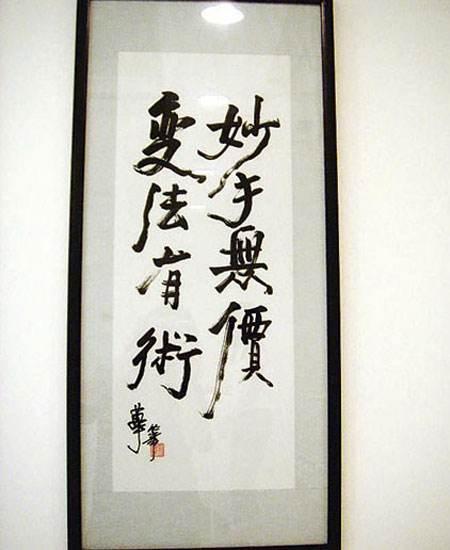 妙手無價
變法有術